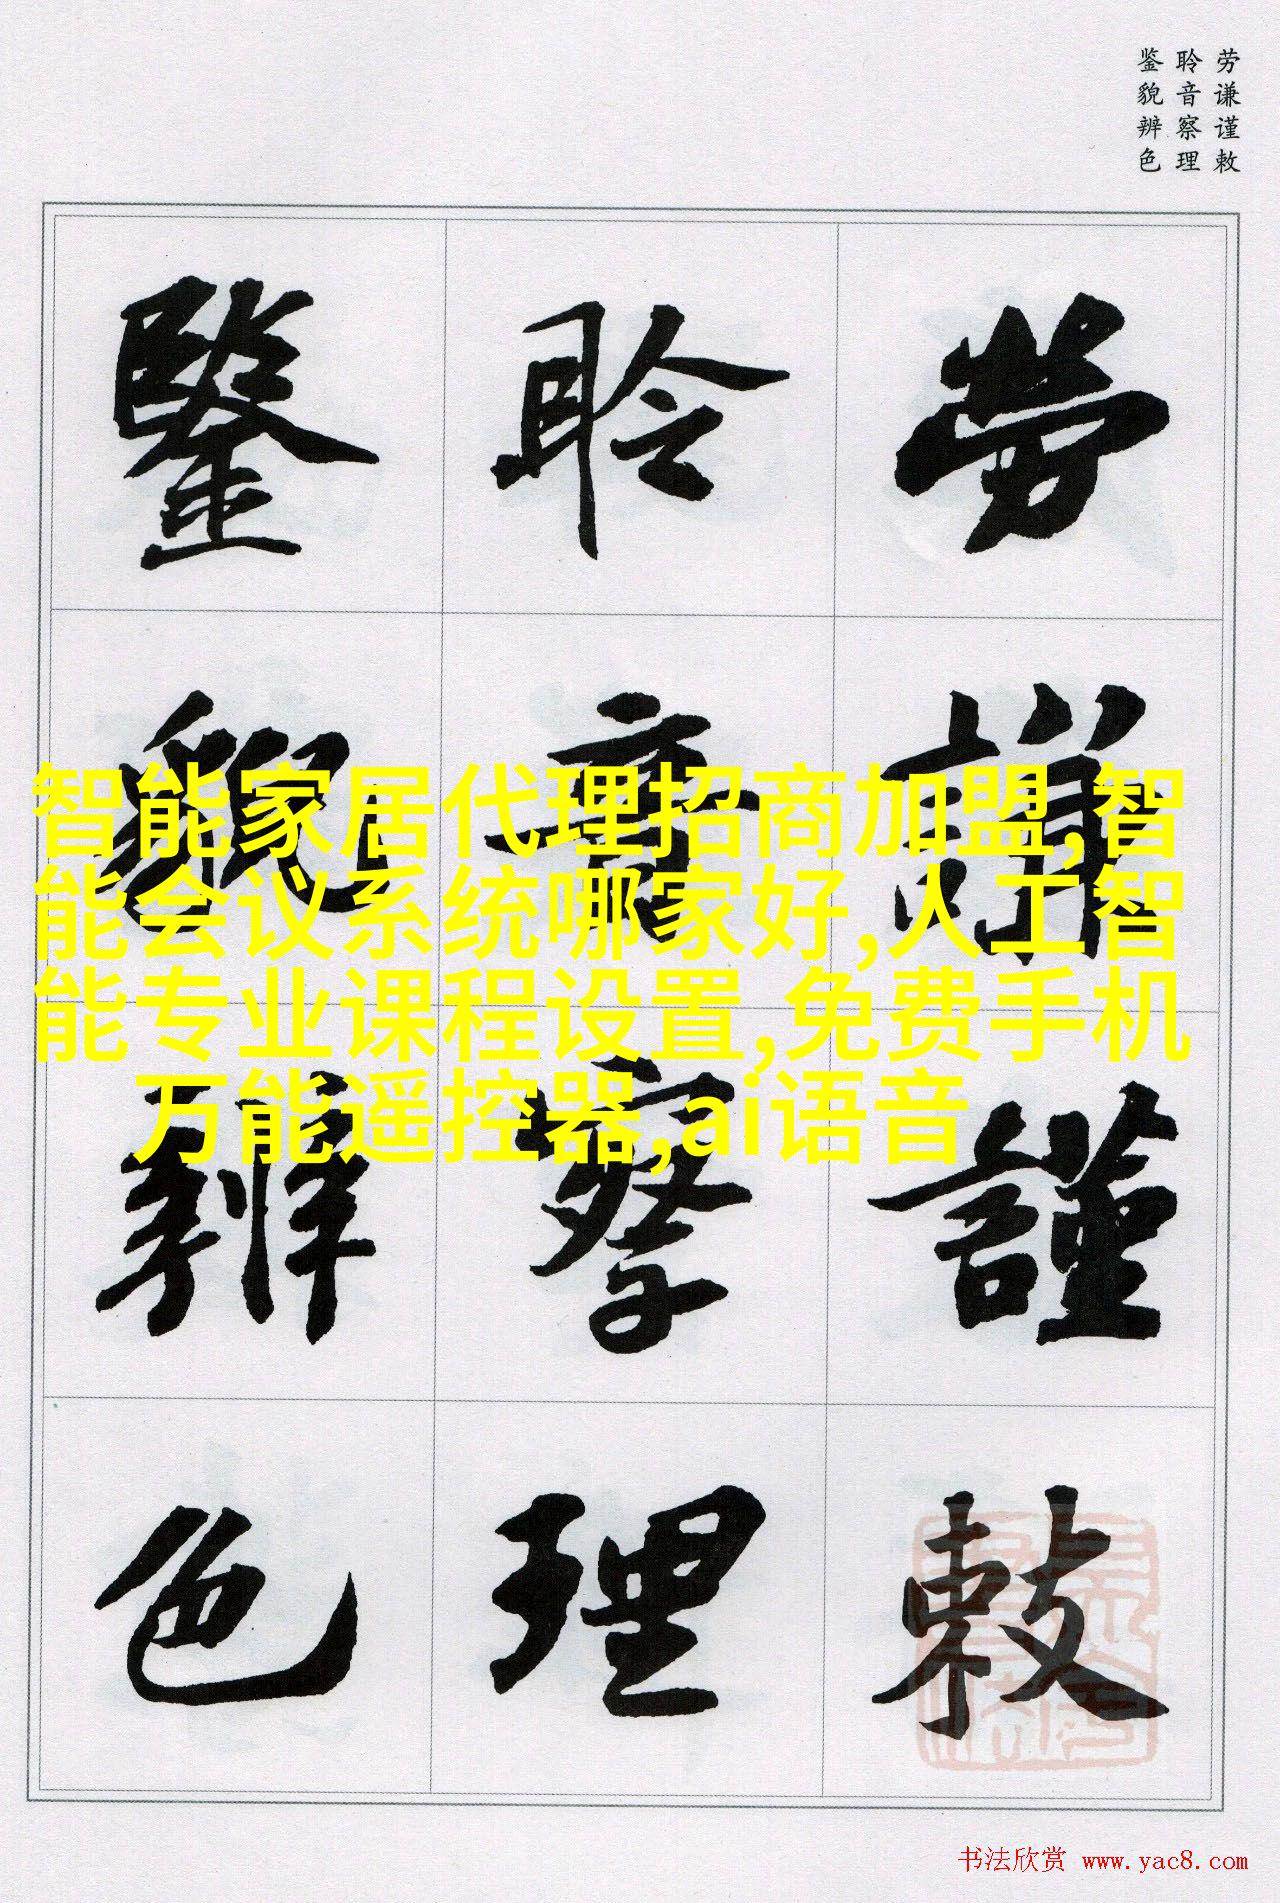 劳谦谨敕
聆音察理
鉴貌辨色
勞謙謹敕
聆音察理
鑒貌辨色
智能家居代理招商加盟,智
能会议系统哪家好,人工智
能专业课程设置,免费手机
万能遥控器,ai语音
书法欣赏 www.yac8.com